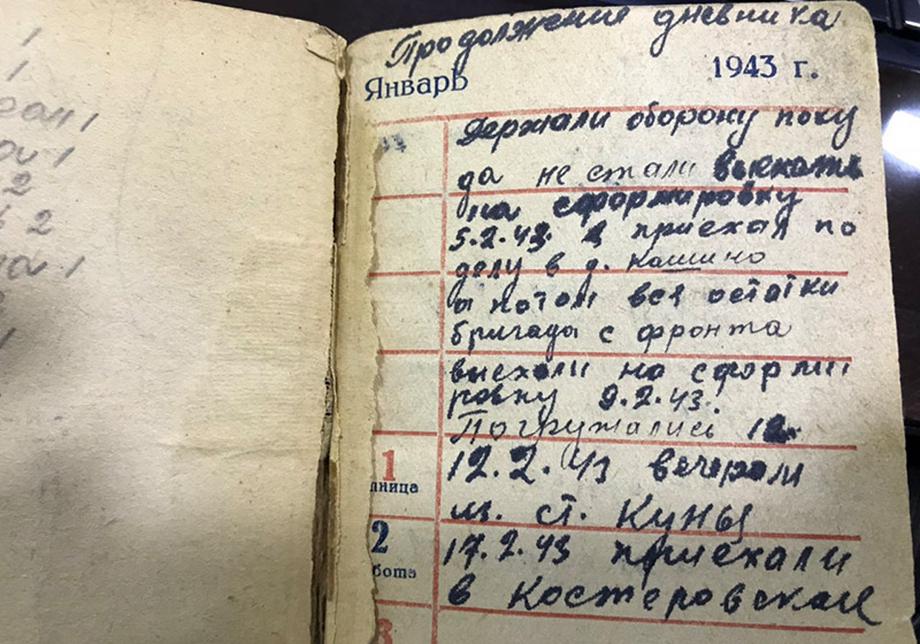 Продолжение дневника
Январь 1943 г.
Держали оборону поку
да не стали выезжать
на сформировку
5.2.43. я приехал по
делу в д. Кашино
а потом все остатки
бригады с фронта
выехали на сформи
ровку 9.2.43.
Погружались 12.
1
пница
12.2.43 вечером
ст. Куны
2
бота
17.2.43 приехали
в Костеровская
3